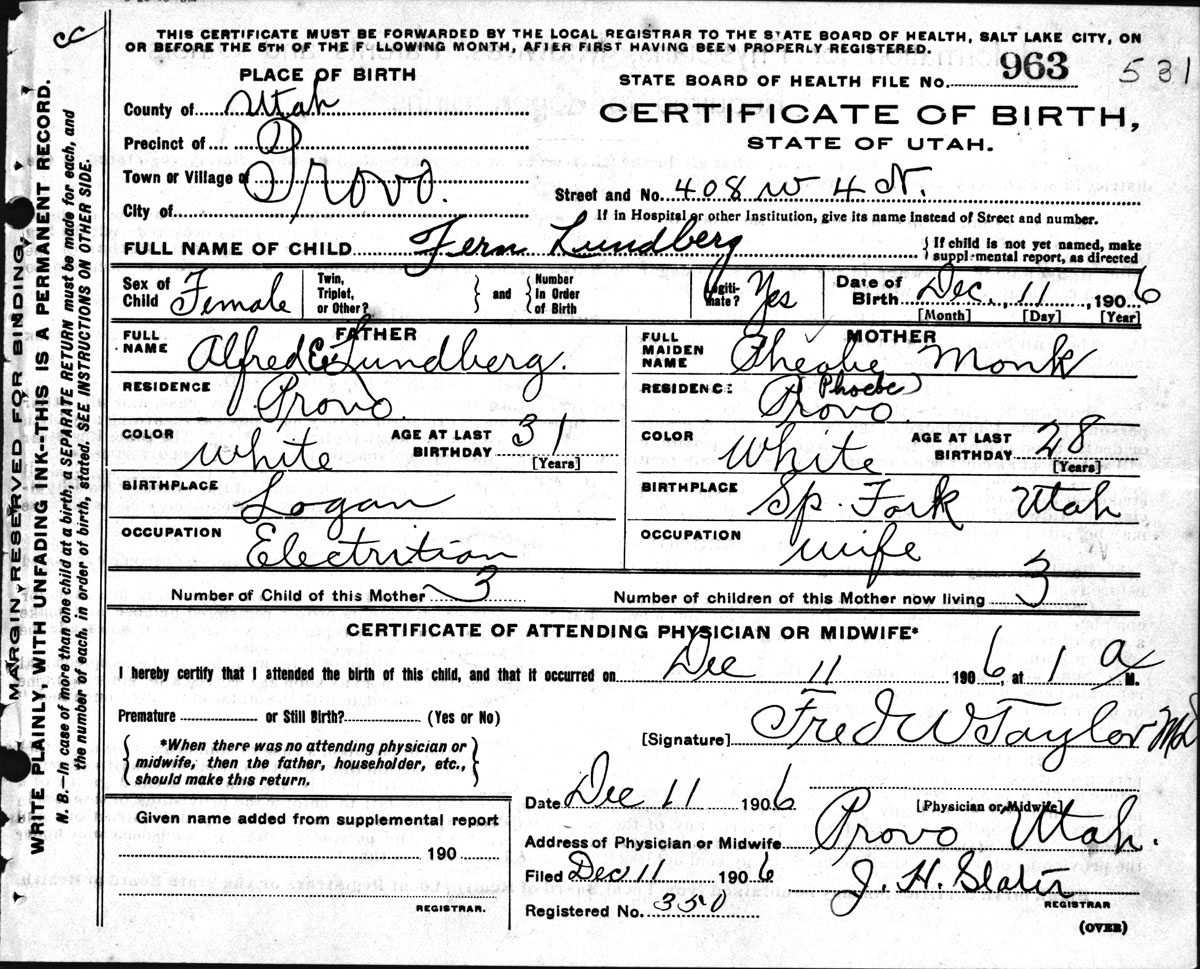 cc
THIS CERTIFICATE MUST BE FORWARDED BY THE LOCAL REGISTRAR TO THE STATE BOARD OF HEALTH, SALT LAKE CITY, ON
OR BEFORE THE 5TH OF THE F. LLOWING MONTH, AFTER FIRST HAVING BEEN PROPERLY REGISTERED.
PLACE OF BIRTH
STATE BOARD OF HEALTH FILE No. 963 531
County of Utah
CERTIFICATE OF BIRTH,
STATE OF UTAH.
Precinct of
Town or Village of Provo.
Street and No. 408 W 4 N.
City of
If in Hospital or other Institution, give its name instead of Street and number.
FULL NAME OF CHILD Fern Lundberg
{ If child is not yet named, make
supplemental report, as directed
Sex of Child Female Twin, Triplet, or Other? } and { Number In Order of Birth Legiti-mate? Yes Date of Birth Dec., 11, 1906
[Month] [Day] [Year]
FATHER MOTHER
FULL NAME Alfred E. Lundberg. FULL MAIDEN NAME Pheabe Monk
(Phoebe)
RESIDENCE Provo. RESIDENCE Provo
COLOR White AGE AT LAST BIRTHDAY 31 [Years] COLOR White AGE AT LAST BIRTHDAY 28 [Years]
BIRTHPLACE Logan BIRTHPLACE Sp. Fork Utah
OCCUPATION Electrition OCCUPATION wife
Number of Child of this Mother 3 Number of children of this Mother now living 3
CERTIFICATE OF ATTENDING PHYSICIAN OR MIDWIFE*
I hereby certify that I attended the birth of this child, and that it occurred on Dec 11 1906, at 1 a M.
Premature or Still Birth? (Yes or No)
[Signature] Fred W Taylor MD
{ *When there was no attending physician or
midwife, then the father, householder, etc.,
should make this return. }
Date Dec 11 1906
[Physician or Midwife]
Given name added from supplemental report
190
REGISTRAR.
Address of Physician or Midwife Provo Utah.
Filed Dec 11 1906 J. H. Slater
REGISTRAR
Registered No. 350
(OVER)
MARGIN RESERVED FOR BINDING.
WRITE PLAINLY, WITH UNFADING INK—THIS IS A PERMANENT RECORD.
N. B.—In case of more than one child at a birth, a SEPARATE RETURN must be made for each, and
the number of each, in order of birth, stated. SEE INSTRUCTIONS ON OTHER SIDE.